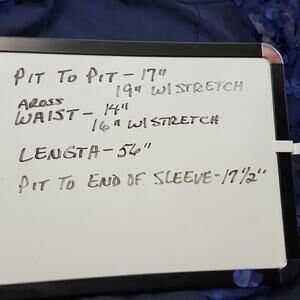 PIT TO PIT - 17"
19" W/STRETCH
AROSS
WAIST - 14"
16" W/STRETCH
LENGTH - 56"
PIT TO END OF SLEEVE - 17 1/2"